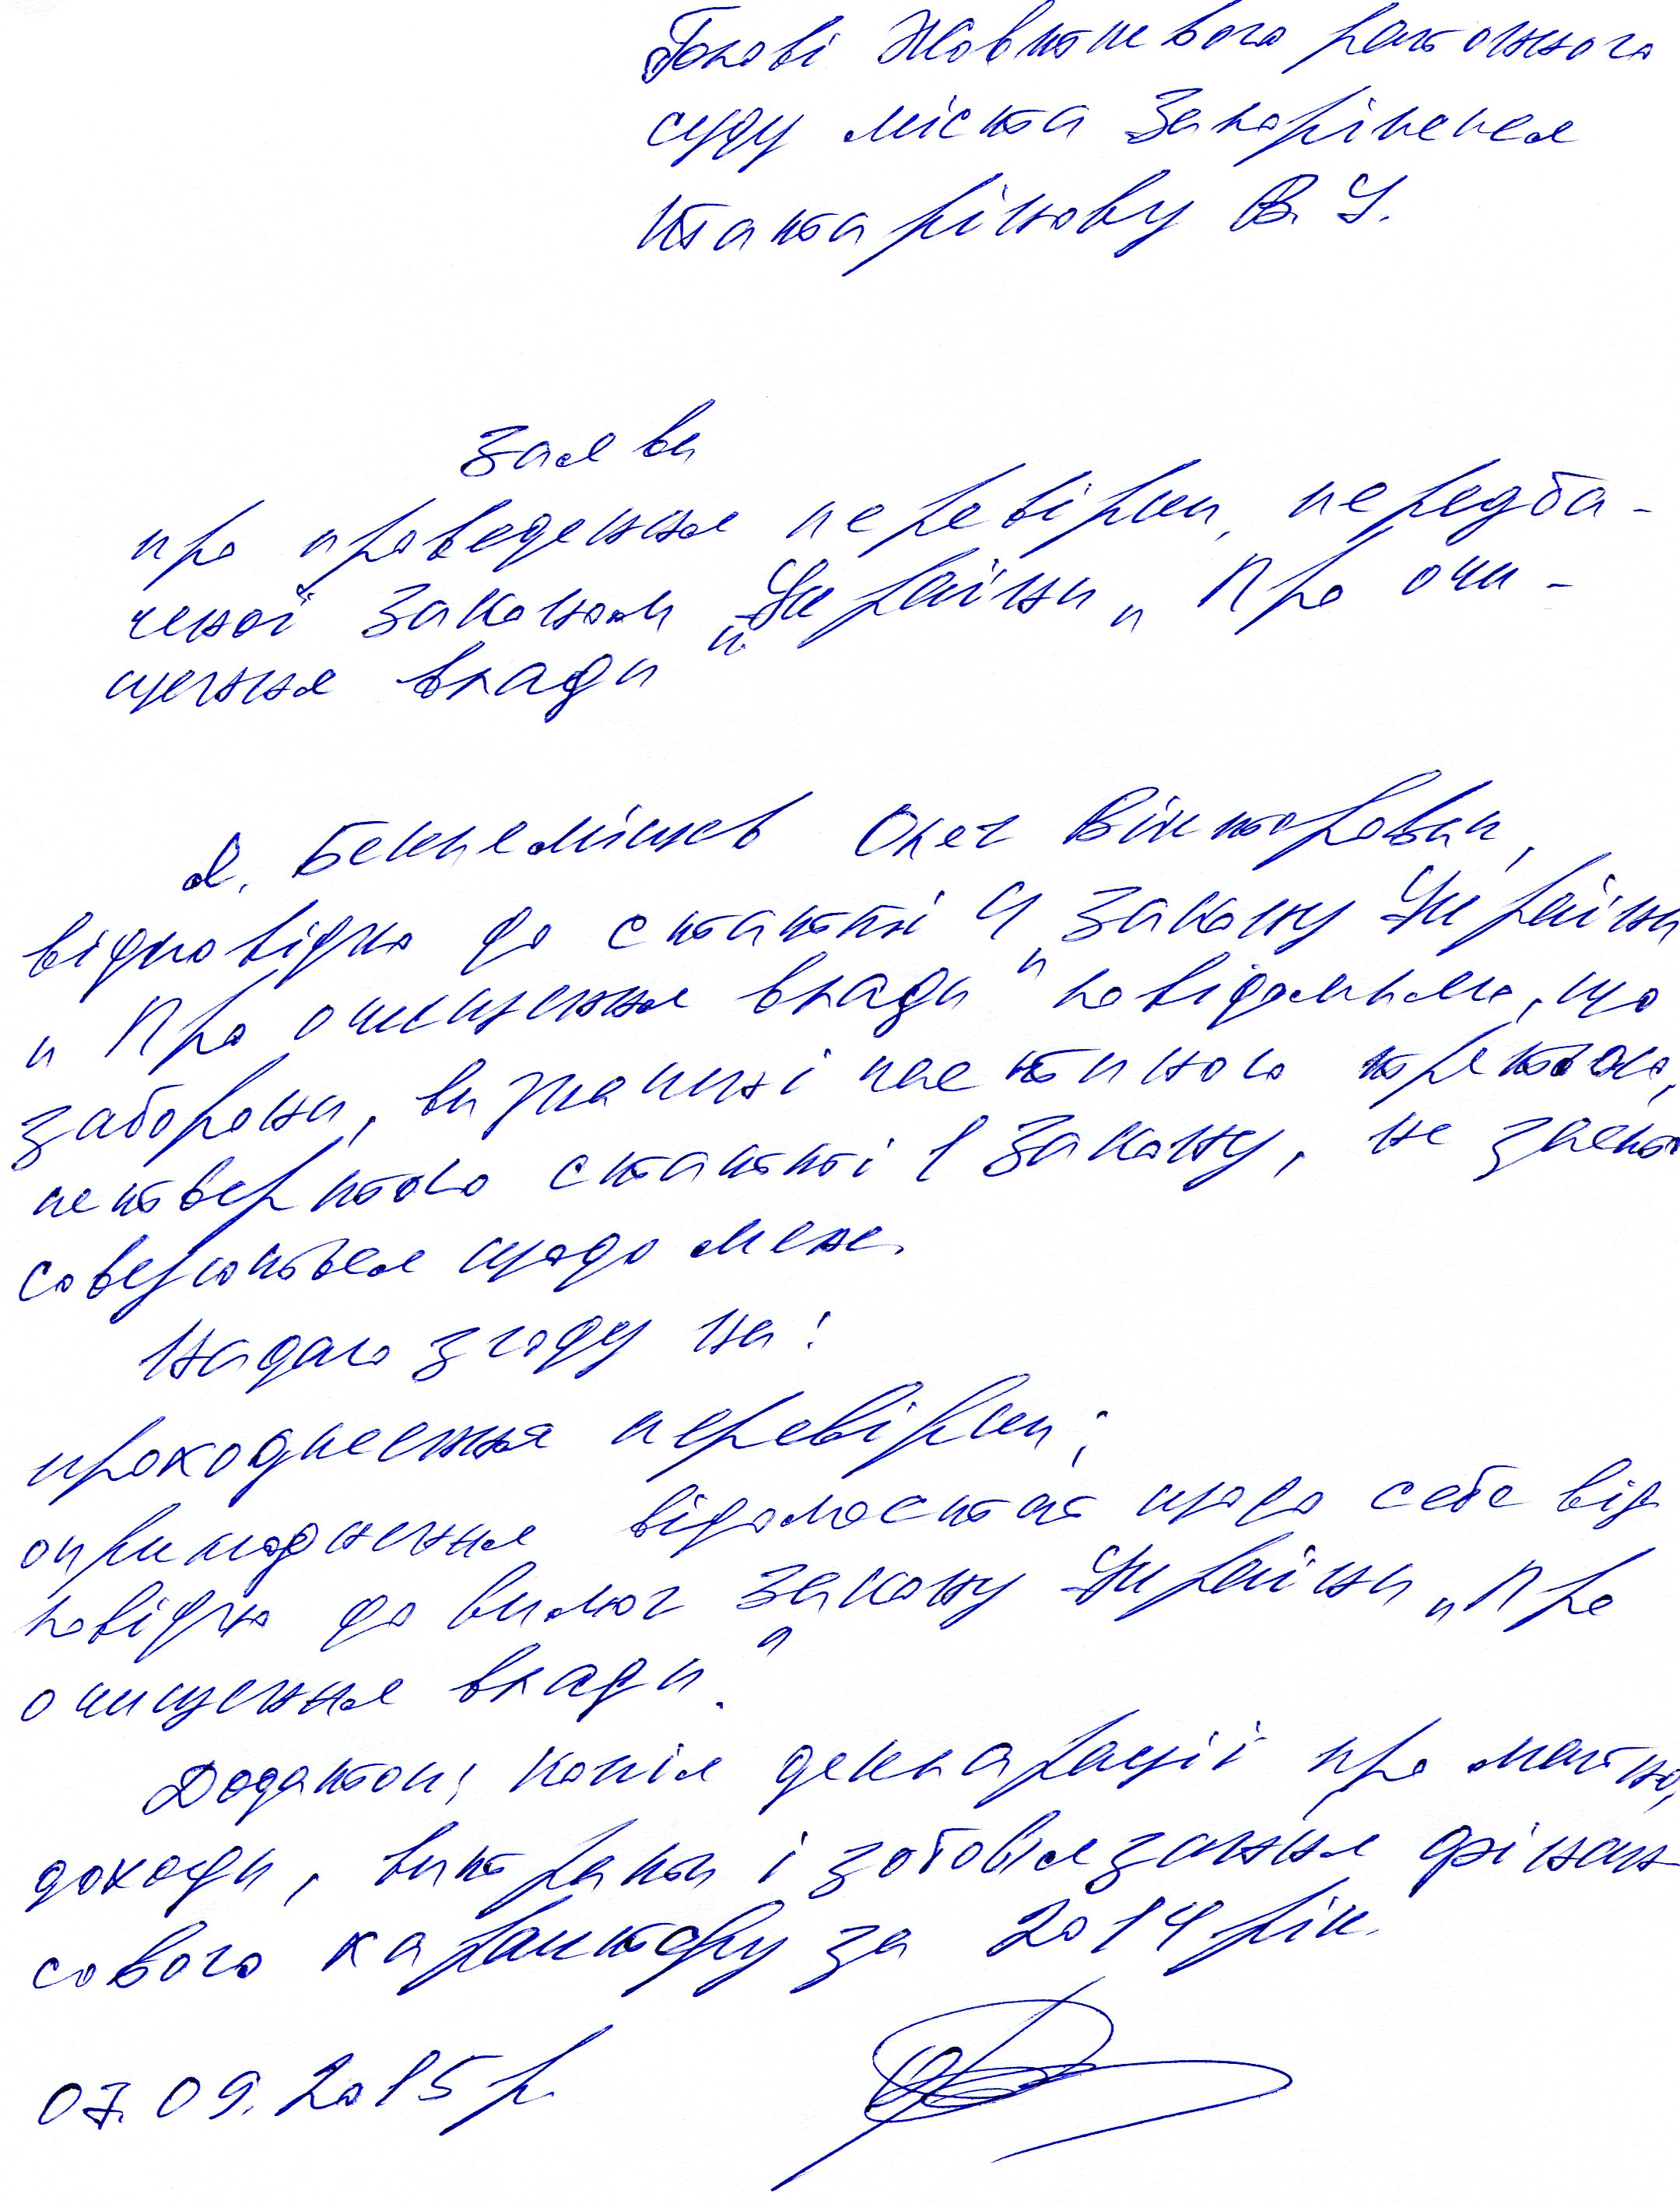 Голові Жовтневого районного
суду міста Запоріжжя
В. У.
Заява
про проведення перевірки, передба-
ченої Законом України „Про очи-
щення влади"
Я, Беклемішев Олег Вікторович,
відповідно до статті 4 Закону України
„Про очищення влади" повідомляю, що
заборони, визначені частиною третьою,
четвертою статті 1 Закону, не засто
совуються щодо мене.
Надаю згоду на:
проходження перевірки;
оприлюднення відомостей щодо себе від
повідно до вимог Закону України „Про
очищення влади".
Додатки: копія декларації про майно,
доходи, витрати і зобов'язання фінан
сового характеру за 2014 рік.
07.09.2015 р.